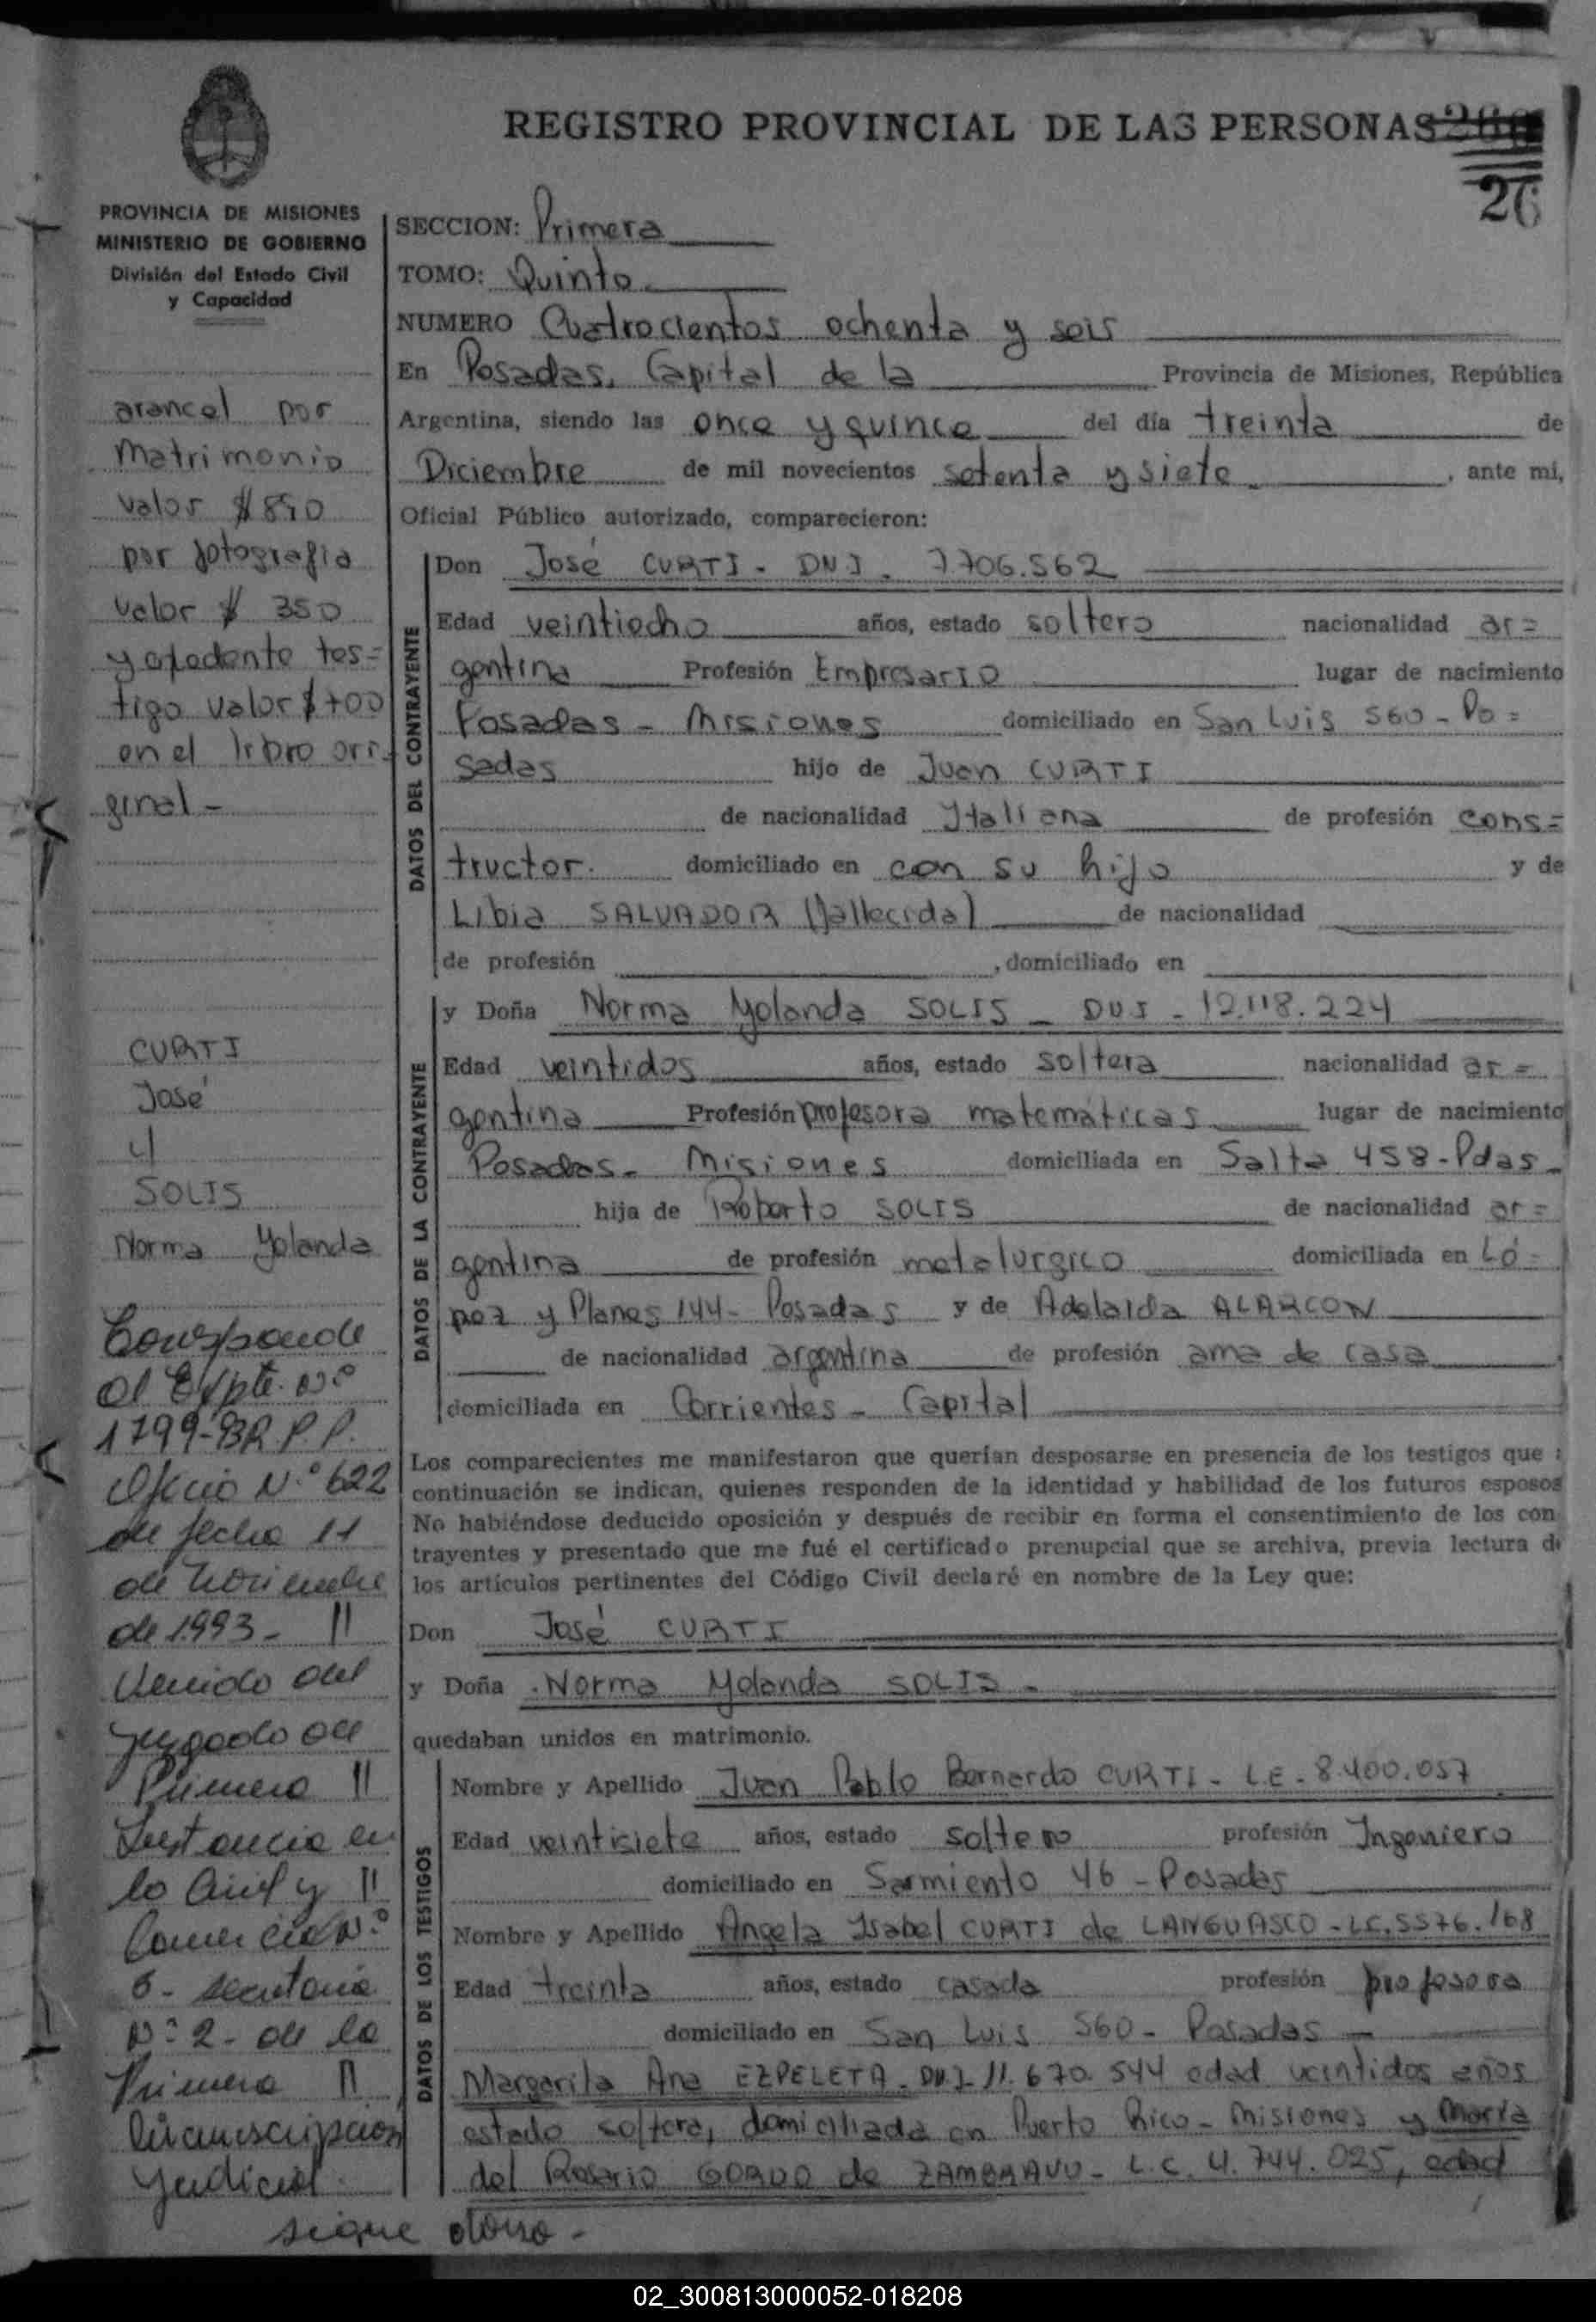 REGISTRO PROVINCIAL DE LAS PERSONAS
26
PROVINCIA DE MISIONES
MINISTERIO DE GOBIERNO
División del Estado Civil
y Capacidad
SECCION: Primera
TOMO: Quinto
NUMERO Cuatrocientos ochenta y seis
En Posadas, Capital de la Provincia de Misiones, República
Argentina, siendo las once y quince del día treinta de
Diciembre de mil novecientos setenta y siete , ante mí,
Oficial Público autorizado, comparecieron:
arancel por
Matrimonio
valor $ 890
por fotografia
valor $ 350
y exedente tes=
tigo valor $ 700
en el libro ori-
ginal -
DATOS DEL CONTRAYENTE
Don José CURTI - DNI - 7.706.562
Edad veintiocho años, estado soltero nacionalidad ar=
gentina Profesión Empresario lugar de nacimiento
Posadas - Misiones domiciliado en San Luis 560 - Po=
sadas hijo de Juan CURTI
de nacionalidad Italiana de profesión cons=
tructor. domiciliado en con su hijo y de
Libia SALVADOR (fallecida) de nacionalidad
de profesión , domiciliado en
CURTI
José
y
SOLIS
Norma Yolanda
DATOS DE LA CONTRAYENTE
y Doña Norma Yolanda SOLIS - DNI - 12.118.224
Edad veintidos años, estado soltera nacionalidad ar=
gentina Profesión profesora matemáticas lugar de nacimiento
Posadas - Misiones domiciliada en Salta 458 - Pdas -
hija de Roberto SOLIS de nacionalidad ar=
gentina de profesión metalurgico domiciliada en Ló=
pez y Planes 144 - Posadas y de Adelaida ALARCON
de nacionalidad argentina de profesión ama de casa
domiciliada en Corrientes - Capital
Los comparecientes me manifestaron que querían desposarse en presencia de los testigos que
continuación se indican, quienes responden de la identidad y habilidad de los futuros esposos
No habiéndose deducido oposición y después de recibir en forma el consentimiento de los con
trayentes y presentado que me fué el certificado prenupcial que se archiva, previa lectura de
los artículos pertinentes del Código Civil declaré en nombre de la Ley que:
Don José CURTI
y Doña Norma Yolanda SOLIS -
quedaban unidos en matrimonio.
Corresponde
al Expte. Nº
1799-93 R.P.P.
Oficio Nº 622
de fecha 11
de Noviembre
de 1993 - //
Venido del
Juzgado de
Primera //
Instancia en
lo Civil y //
Comercial Nº
6 - secretaria
Nº 2 - de la
Primera //
Circunscripcion
Judicial.
DATOS DE LOS TESTIGOS
Nombre y Apellido Juan Pablo Bernardo CURTI - L.E - 8.400.057
Edad veintisiete años, estado soltero profesión Ingeniero
domiciliado en Sarmiento 46 - Posadas
Nombre y Apellido Angela Isabel CURTI de LANGUASCO - LC. 5576.168
Edad treinta años, estado casada profesión profesora
domiciliado en San Luis 560 - Posadas -
Margarita Ana EZPELETA - DNI 11.670.544 edad veintidos años
estado soltera, domiciliada en Puerto Rico - Misiones y María
del Rosario GORDO de ZAMBRANO - L.C. 4.744.025, edad
sigue dorso -
02_300813000052-018208